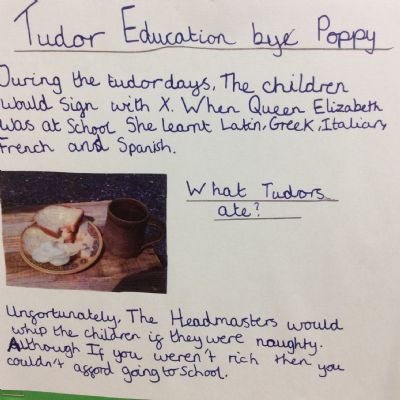 Tudor Education bye Poppy
During the tudor days, The children
would sign with X. When Queen Elizabeth
was at School She learnt Latin, Greek, Italian,
French and Spanish.
What Tudors
ate?
Unfortunately, The Headmasters would
whip the children if they were naughty.
Although If you weren't rich then you
couldn't afford going to School.